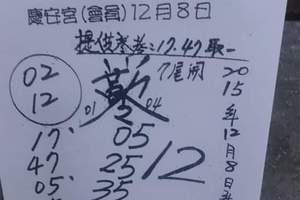 慶安宮(會員)12月8日
提供參考:17.47取一
7尾開
02
12
01
04
17
47
05
05
25
35
12
2015年12月8日